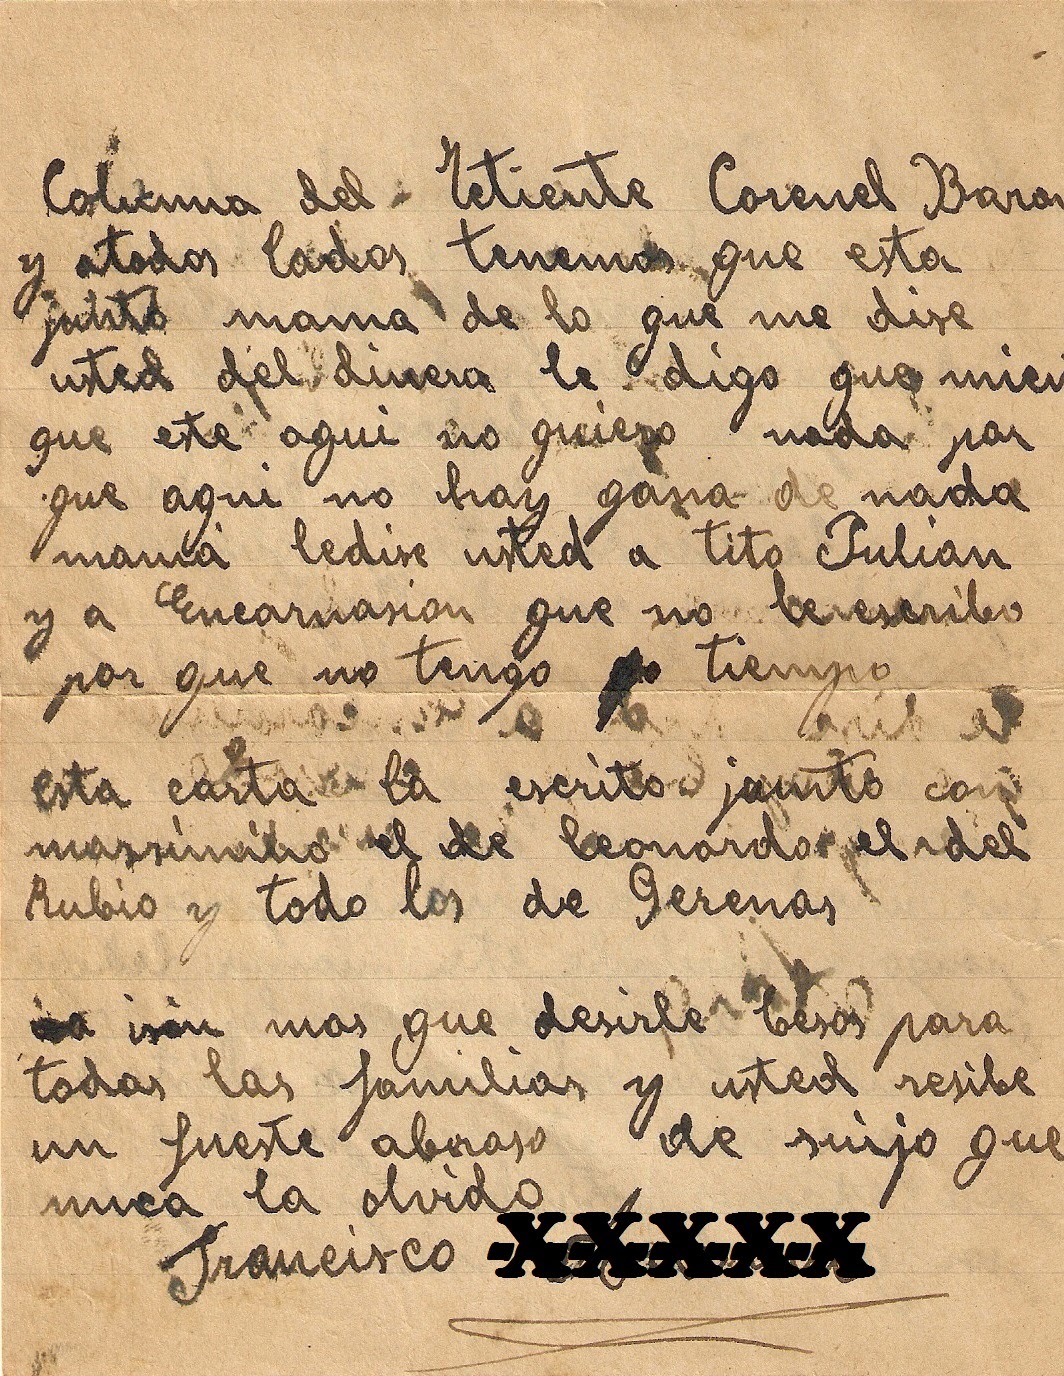 Columna del Tetiente Corenel Baron
y atodos lados tenemos que esta
junto mama de lo que me dise
usted del dinera le digo que mien
que este aqui no quiero nada por
que aqui no hay gana de nada
mamá ledise usted a tito Julian
y a Encarnasion que no le escribo
por que no tengo tiempo
esta carta la escrito junto con
el de Leonardo el del
Rubio y todo los de Gerenas
mas que desirle besos para
todas las familias y usted resibe
un fueste abraso de suijo que
nuca la olvido
Francisco XXXXX